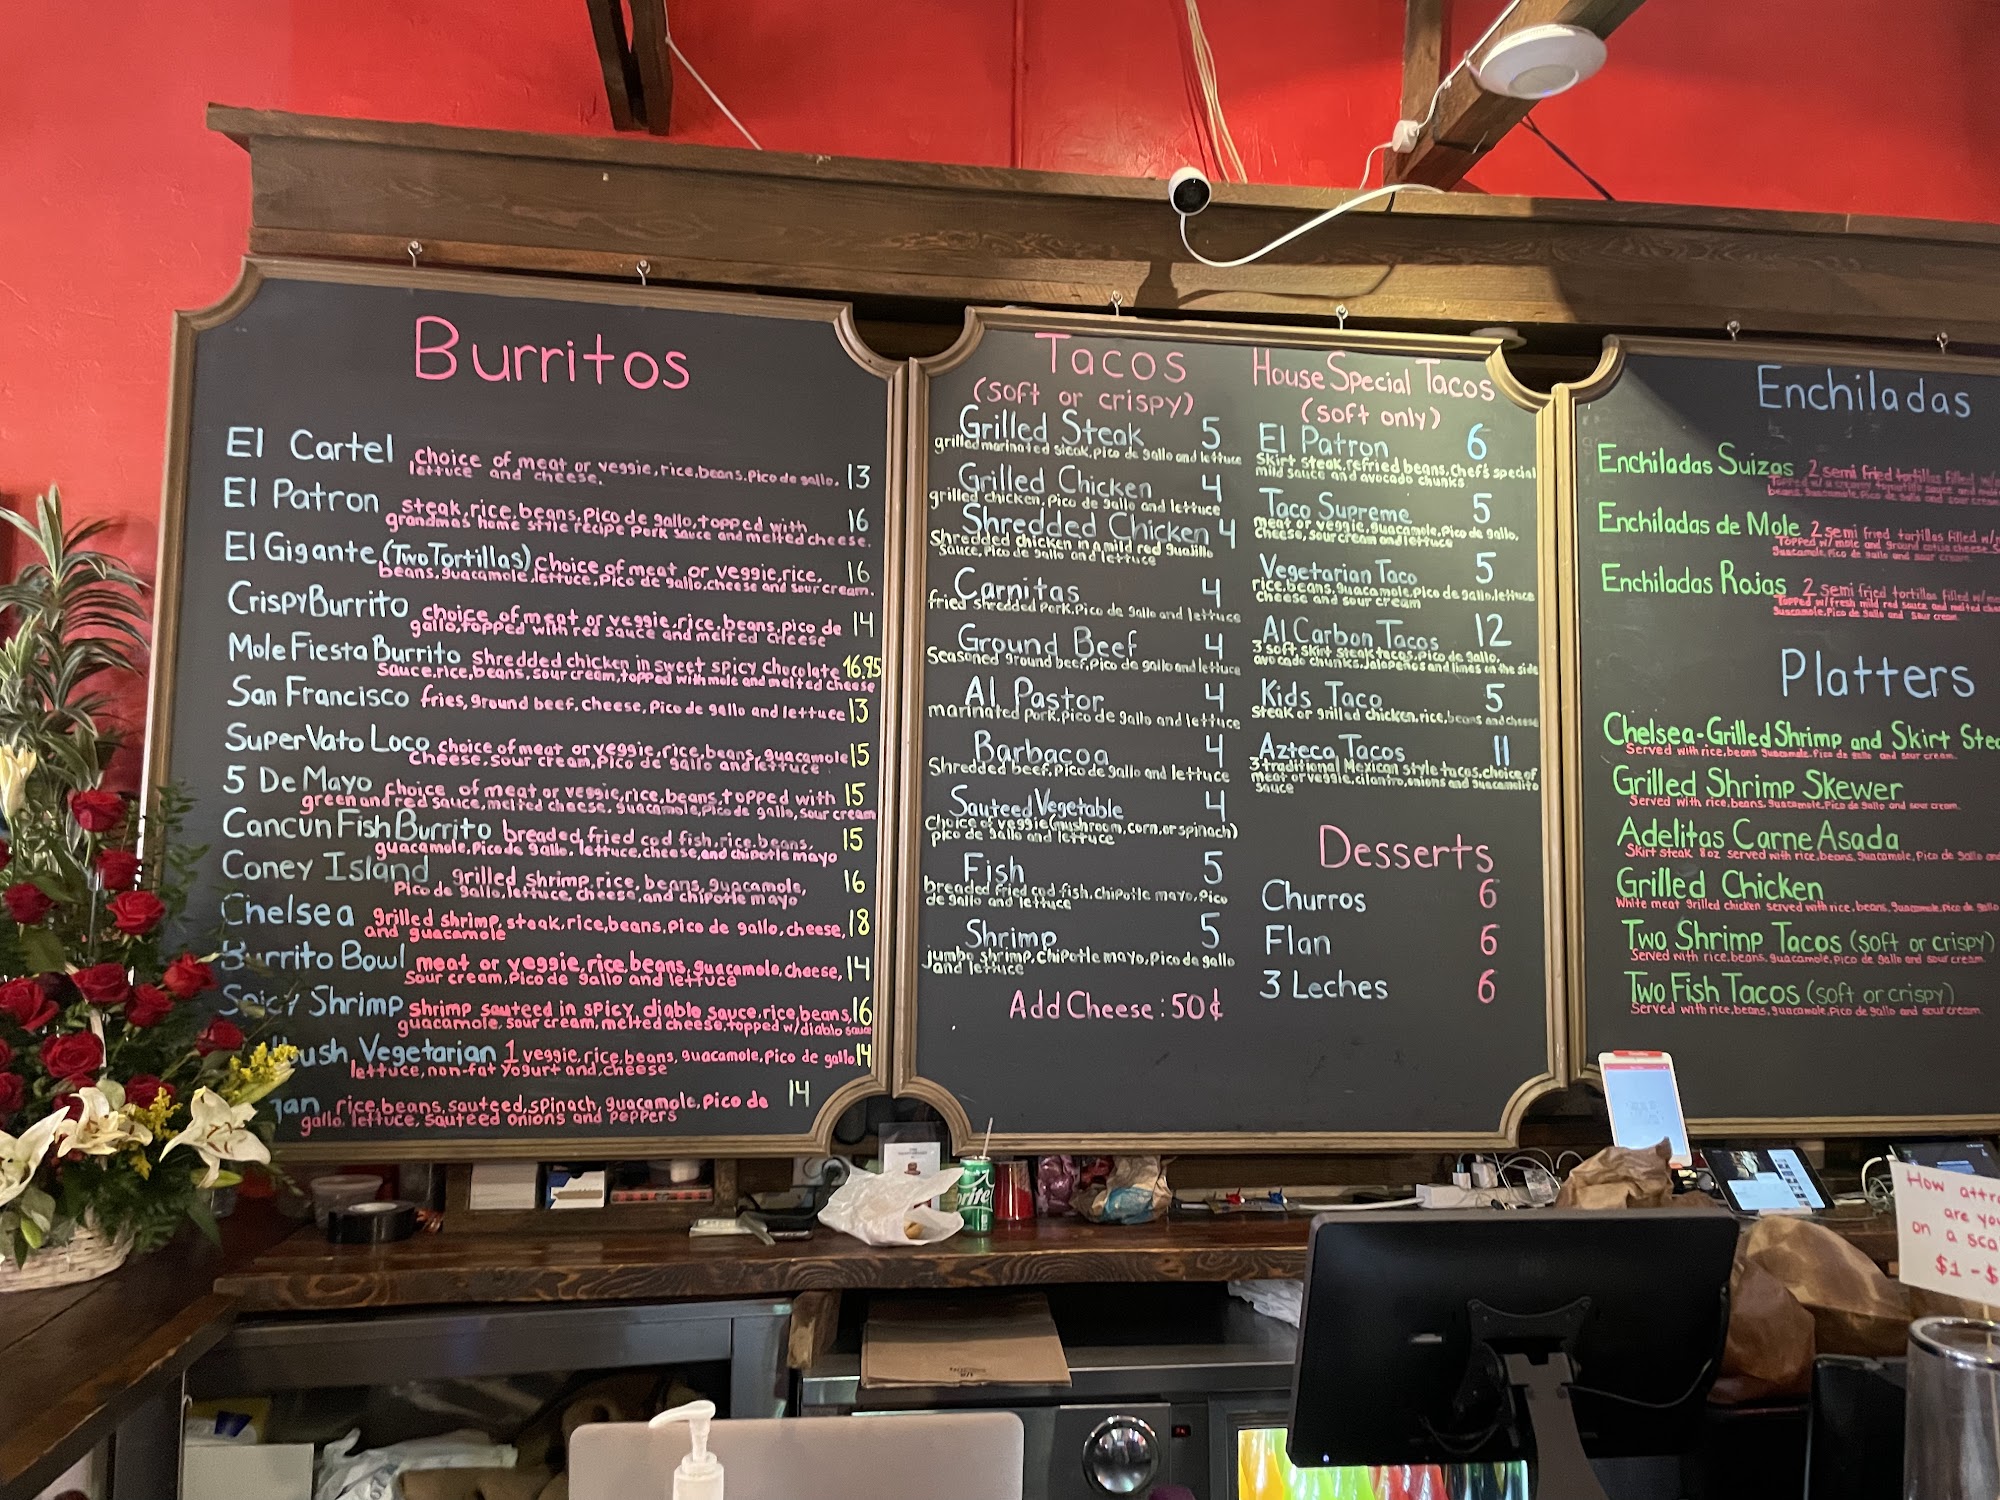 Burritos
El Cartel choice of meat or veggie, rice, beans, Pico de gallo, 13
lettuce and cheese.
El Patron steak, rice, beans, Pico de gallo, topped with 16
grandmas home style recipe Pork sauce and melted cheese.
El Gigante (Two Tortillas) Choice of meat or veggie, rice, 16
beans, guacamole, lettuce, Pico de gallo, cheese and sour cream.
Crispy Burrito choice of meat or veggie, rice, beans, pico de 14
gallo, topped with red sauce and melted cheese
Mole Fiesta Burrito shredded chicken in sweet spicy chocolate 16.95
sauce, rice, beans, sour cream, topped with mole and melted cheese
San Francisco fries, ground beef, cheese, Pico de gallo and lettuce 13
Super Vato Loco choice of meat or veggie, rice, beans, guacamole 15
cheese, sour cream, Pico de gallo and lettuce
5 De Mayo choice of meat or veggie, rice, beans, topped with 15
green and red sauce, melted cheese, guacamole, Pico de gallo, sour cream
Cancun Fish Burrito breaded, fried cod fish, rice, beans, 15
guacamole, Pico de gallo, lettuce, cheese, and chipotle mayo
Coney Island grilled shrimp, rice, beans, guacamole, 16
Pico de gallo, lettuce, cheese, and chipotle mayo
Chelsea grilled shrimp, steak, rice, beans, Pico de gallo, cheese, 18
and guacamole
Burrito Bowl meat or veggie, rice, beans, guacamole, cheese, 14
Sour cream, Pico de gallo and lettuce
Spicy Shrimp shrimp sauteed in spicy diablo sauce, rice, beans, 16
guacamole, sour cream, melted cheese, topped w/diablo sauce
Vegetarian 1 veggie, rice, beans, guacamole, Pico de gallo 14
lettuce, non-fat yogurt and cheese
rice, beans, sauteed, spinach, guacamole, Pico de 14
gallo, lettuce, sauteed onions and peppers
Tacos
(soft or crispy)
Grilled Steak 5
grilled marinated steak, Pico de gallo and lettuce
Grilled Chicken 4
grilled chicken, Pico de gallo and lettuce
Shredded Chicken 4
Shredded chicken in a mild red guajillo
sauce, Pico de gallo and lettuce
Carnitas 4
fried shredded Pork, Pico de gallo and lettuce
Ground Beef 4
Seasoned ground beef, Pico de gallo and lettuce
Al Pastor 4
marinated Pork, pico de gallo and lettuce
Barbacoa 4
Shredded beef, Pico de gallo and lettuce
Sauteed Vegetable 4
Choice of veggie (mushroom, corn, or spinach)
pico de gallo and lettuce
Fish 5
breaded fried cod fish, chipotle mayo, Pico
de gallo and lettuce
Shrimp 5
jumbo shrimp, chipotle mayo, Pico de gallo
and lettuce
Add Cheese: 50¢
House Special Tacos
(soft only)
El Patron 6
Skirt steak, refried beans, chef's special
mild sauce and avocado chunks
Taco Supreme 5
meat or veggie, guacamole, Pico de gallo,
cheese, sour cream and lettuce
Vegetarian Taco 5
rice, beans, guacamole, pico de gallo, lettuce
cheese and sour cream
Al Carbon Tacos 12
3 soft skirt steak tacos, pico de gallo,
avocado chunks, Jalapeños and limes on the side
Kids Taco 5
steak or grilled chicken, rice, beans and cheese
Azteca Tacos 11
3 traditional Mexican style tacos, choice of
meat or veggie, cilantro, onions and guacamolito
sauce
Desserts
Churros 6
Flan 6
3 Leches 6
Enchiladas
Enchiladas Suizas 2 semi fried tortillas filled w/
Enchiladas de Mole 2 semi fried tortillas filled w/
Topped w/ mole and ground cotija cheese
guacamole, Pico de gallo and sour cream
Enchiladas Rojas 2 semi fried tortillas filled w/
Topped w/ fresh mild red sauce and melted
guacamole, Pico de gallo and sour cream
Platters
Chelsea-Grilled Shrimp and Skirt
Served with rice, beans guacamole, Pico de gallo and sour cream.
Grilled Shrimp Skewer
Served with rice, beans, guacamole, Pico de gallo and sour cream.
Adelitas Carne Asada
Skirt steak 8oz served with rice, beans, guacamole, Pico de gallo
Grilled Chicken
White meat grilled chicken served with rice, beans, guacamole, Pico de gallo
Two Shrimp Tacos (soft or crispy)
Served with rice, beans, guacamole, Pico de gallo and sour cream.
Two Fish Tacos (soft or crispy)
Served with rice, beans, guacamole, Pico de gallo and sour cream
Sprite
How
are
on a
$1 - $